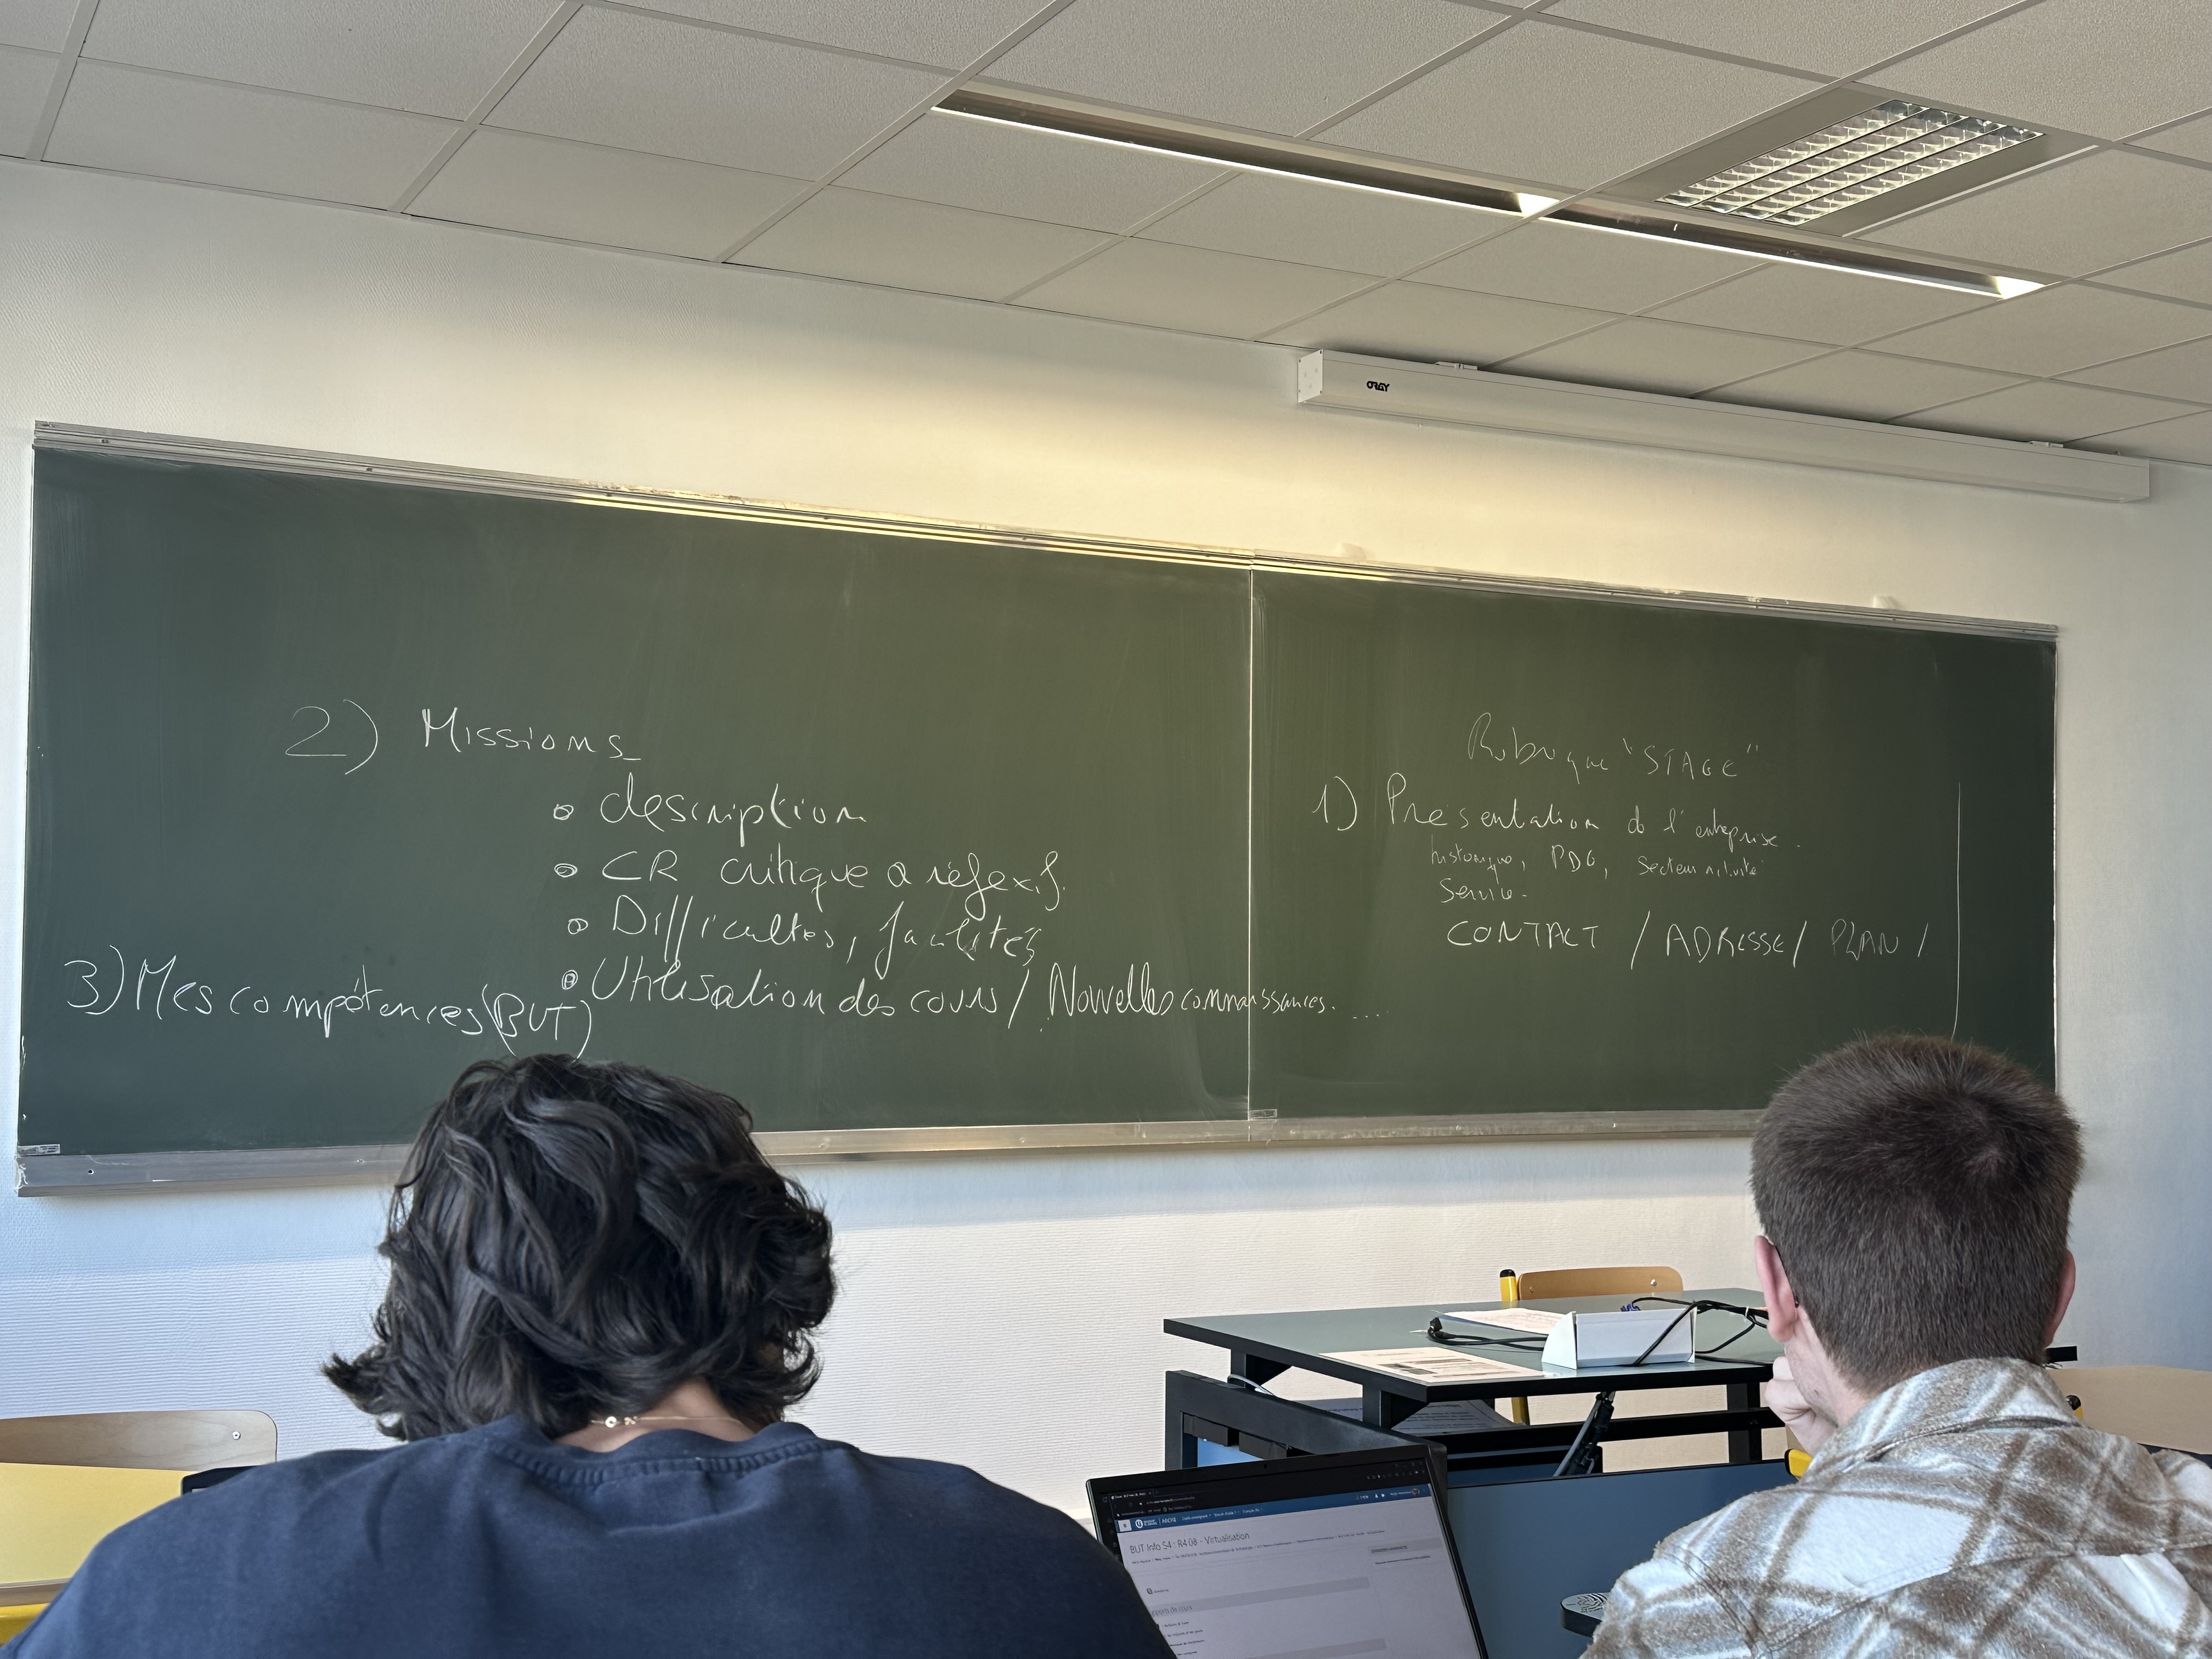 ORAY
Rubrique "STAGE"
1) Présentation de l'entreprise.
historique, PDG, Secteur activité
Service.
CONTACT / ADRESSE / PLAN /
2) Missions
description
CR critique
Difficultés, facilités
Utilisation des cours / Nouvelles connaissances. ....
3) Mes compétences (BUT)
BUT Info S4 : R4.08 - Virtualisation